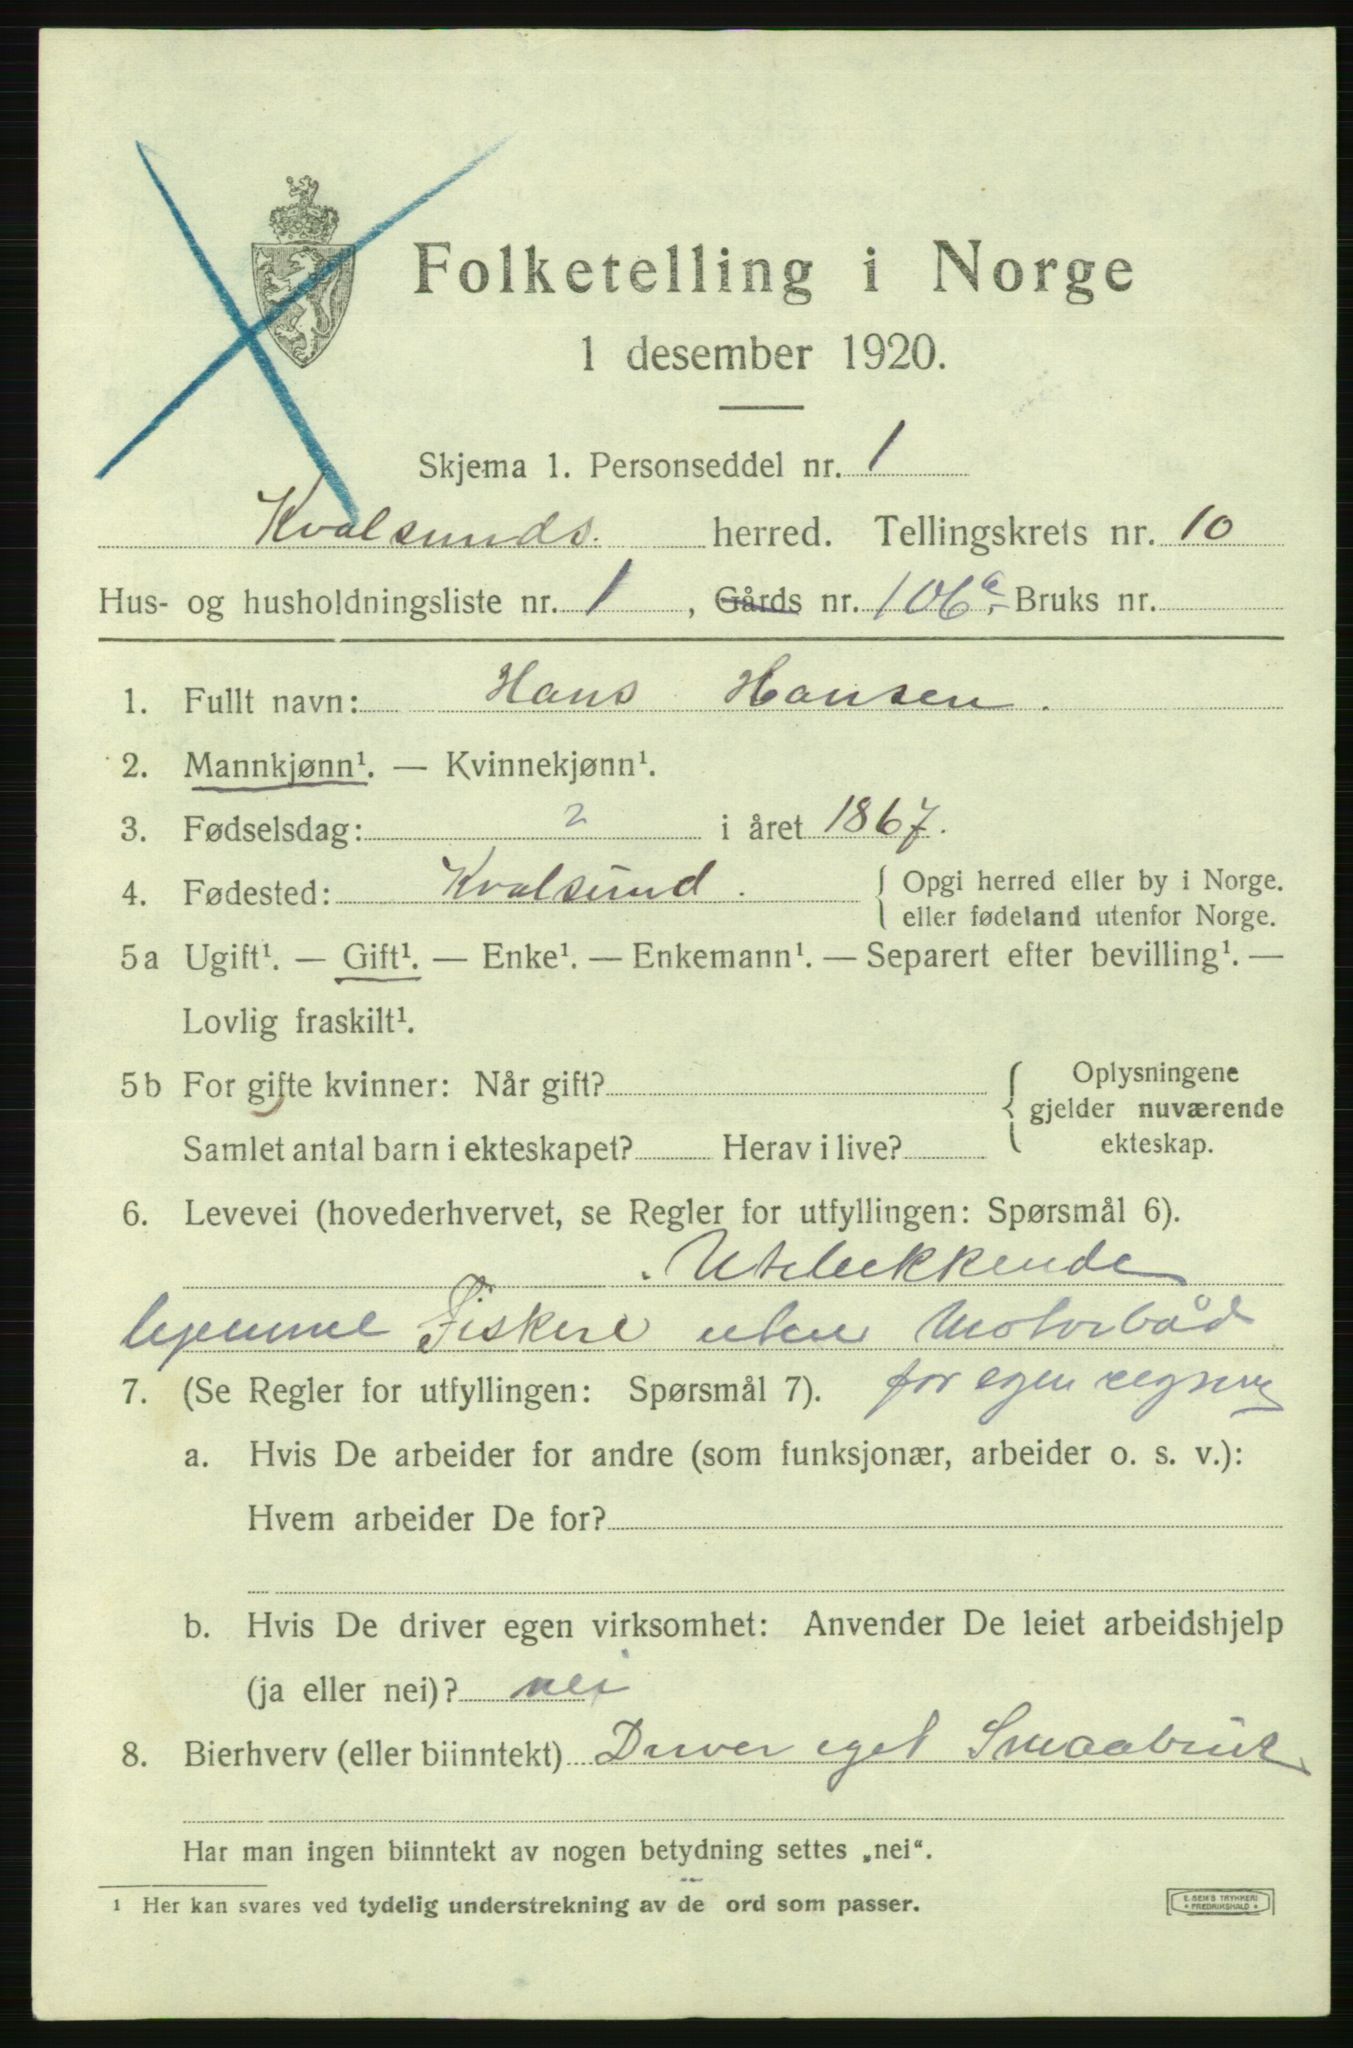 Folketelling i Norge
1 desember 1920.
Skjema 1. Personseddel nr. 1
Kvalsunds. herred. Tellingskrets nr. 10
Hus- og husholdningsliste nr. 1, Gårds nr. 106a Bruks nr.
1. Fullt navn: Hans Hansen.
2. Mannkjønn¹. — Kvinnekjønn¹.
3. Fødselsdag: 2 i året 1867.
4. Fødested: Kvalsund. { Opgi herred eller by i Norge.
eller fødeland utenfor Norge.
5a Ugift¹. — Gift¹. — Enke¹. — Enkemann¹. — Separert efter bevilling¹. —
Lovlig fraskilt¹.
5b For gifte kvinner: Når gift? { Oplysningene
gjelder nuværende
Samlet antal barn i ekteskapet? Herav i live? ekteskap.
6. Levevei (hovederhvervet, se Regler for utfyllingen: Spørsmål 6).
hjemme Fiskere uten Motorbåd
7. (Se Regler for utfyllingen: Spørsmål 7). for egen regning
a. Hvis De arbeider for andre (som funksjonær, arbeider o. s. v.):
Hvem arbeider De for?
b. Hvis De driver egen virksomhet: Anvender De leiet arbeidshjelp
(ja eller nei)? nei
8. Bierhverv (eller biinntekt) Driver eget Smaabruk
Har man ingen biinntekt av nogen betydning settes „nei“.
¹ Her kan svares ved tydelig understrekning av de ord som passer.
E. SEM'S TRYKKERI
FREDRIKSHALD